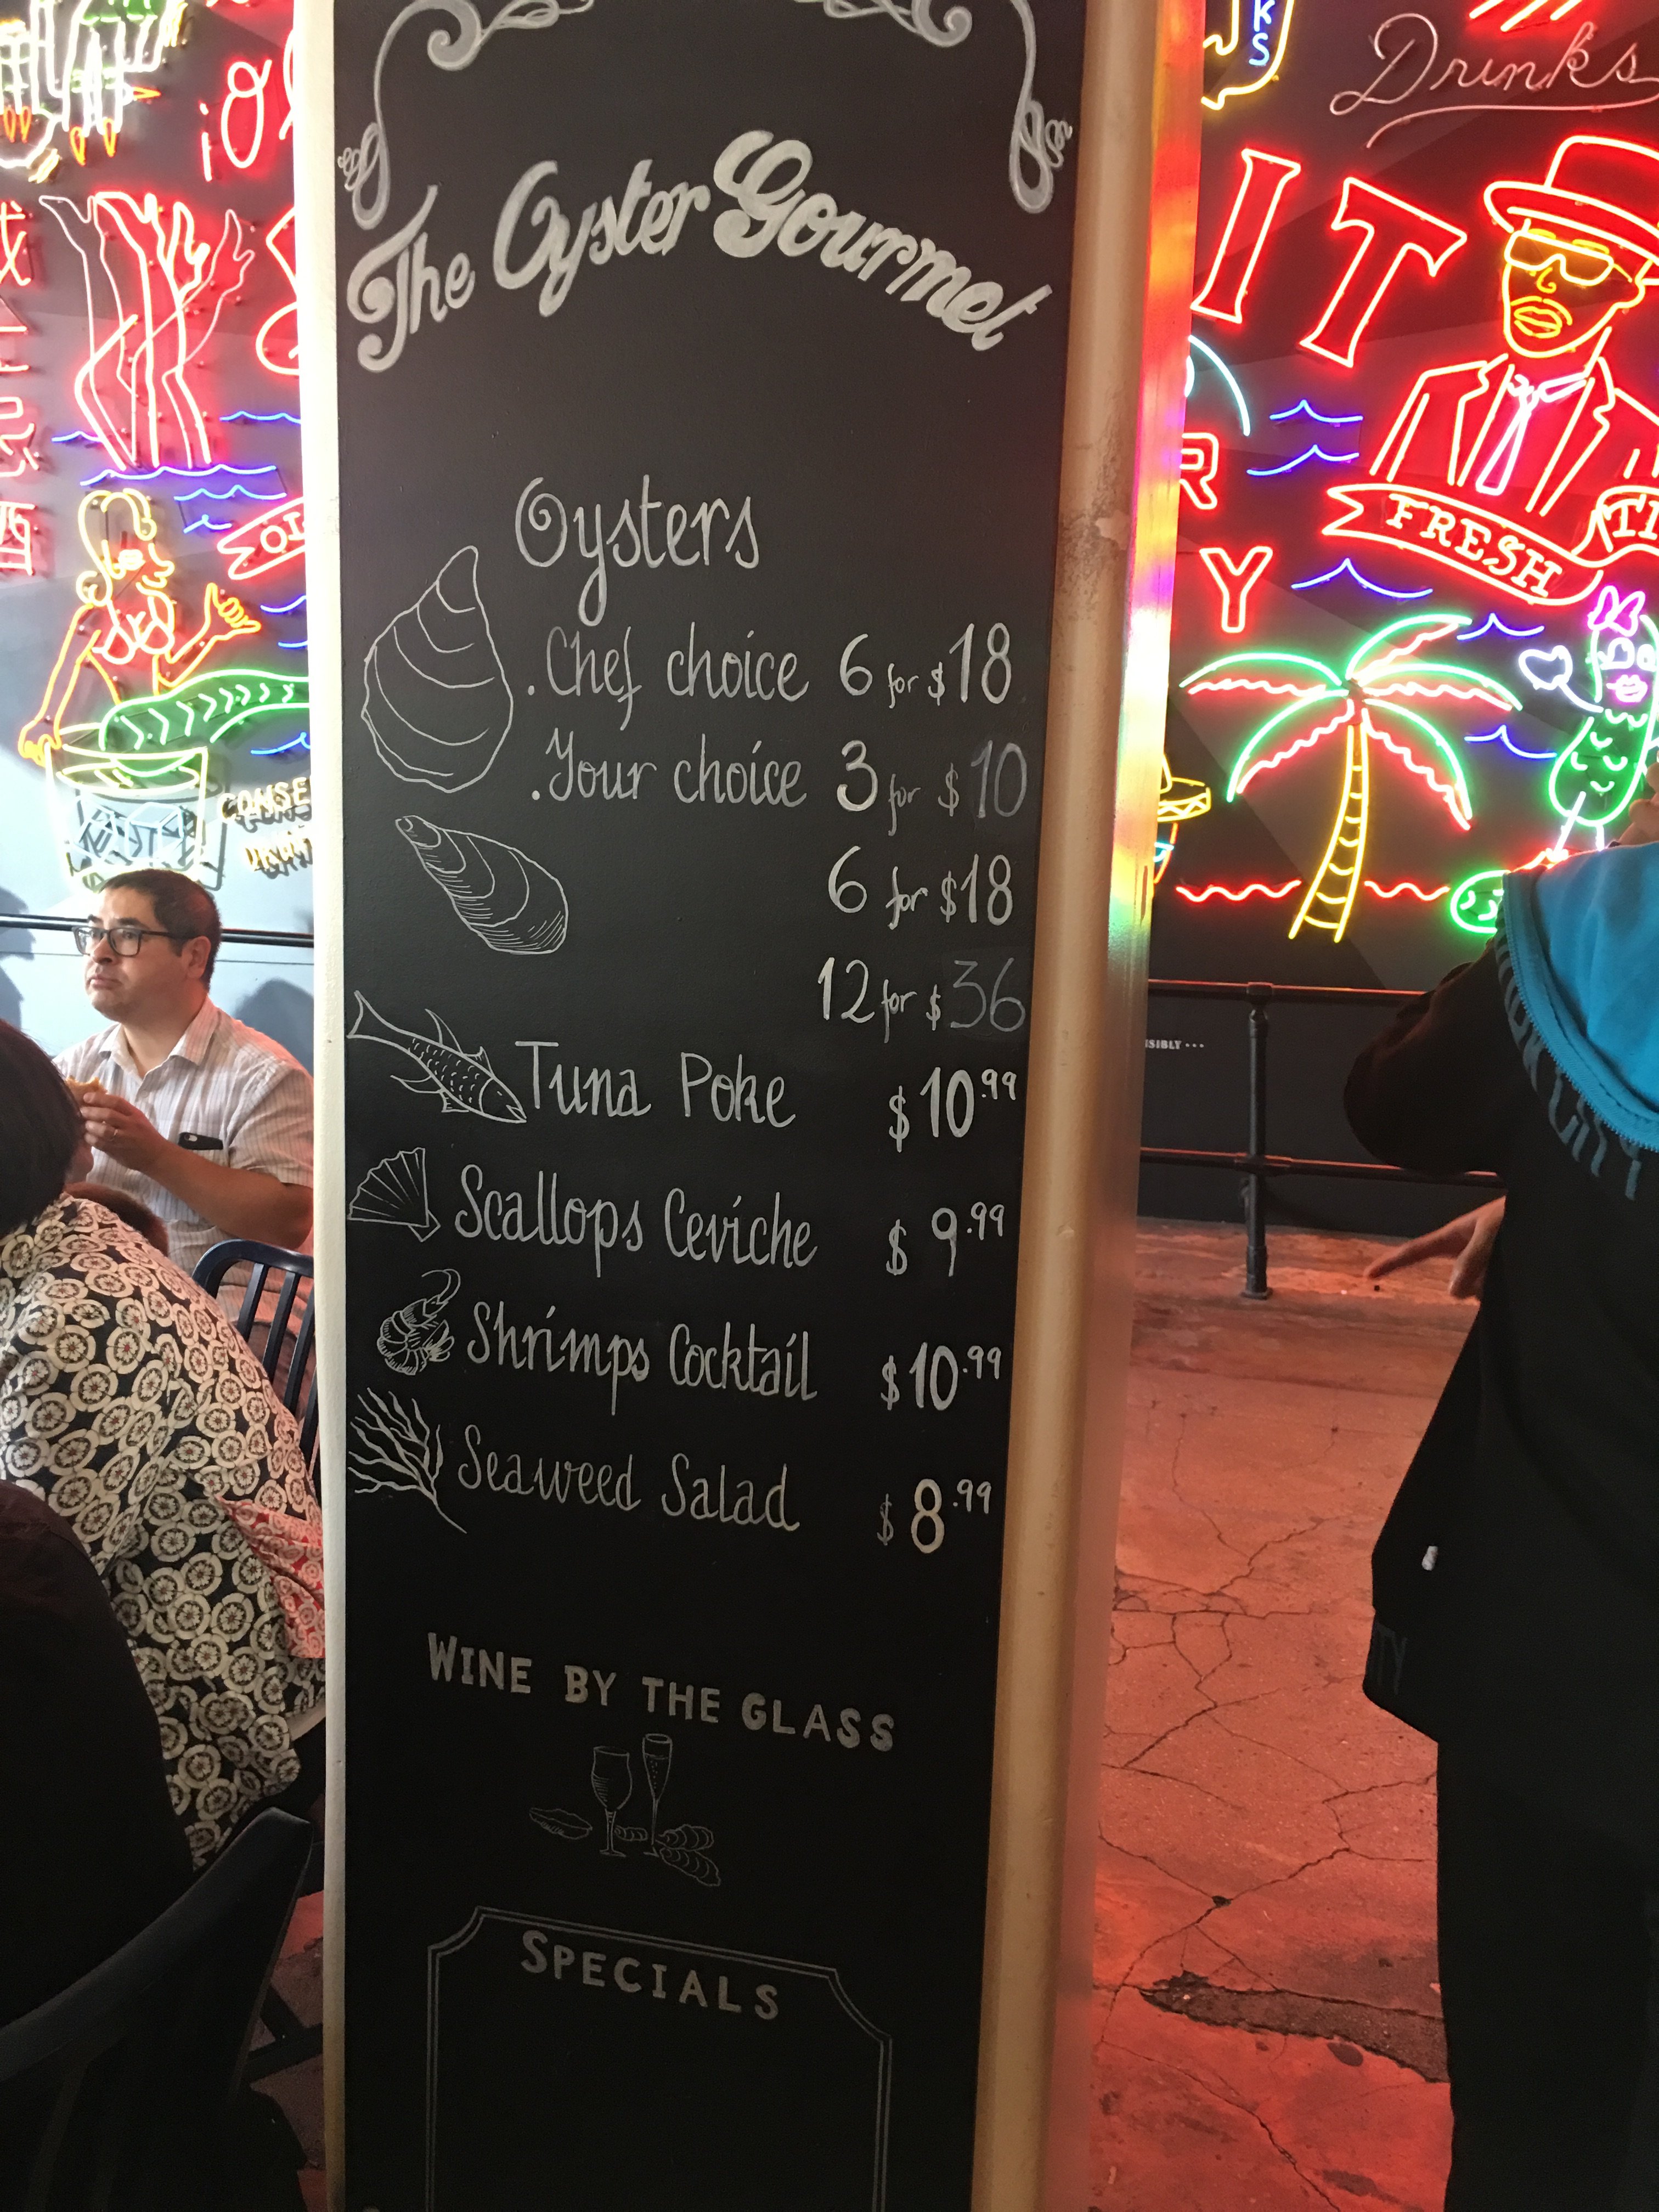 The Oyster Gourmet
Oysters
. Chef choice 6 for $18
. Your choice 3 for $10
6 for $18
12 for $36
Tuna Poke $10.99
Scallops Ceviche $9.99
Shrimps Cocktail $10.99
Seaweed Salad $8.99
WINE BY THE GLASS
SPECIALS
KS
Drinks
IT
R
Y
FRESH
酒
SIBLY ...